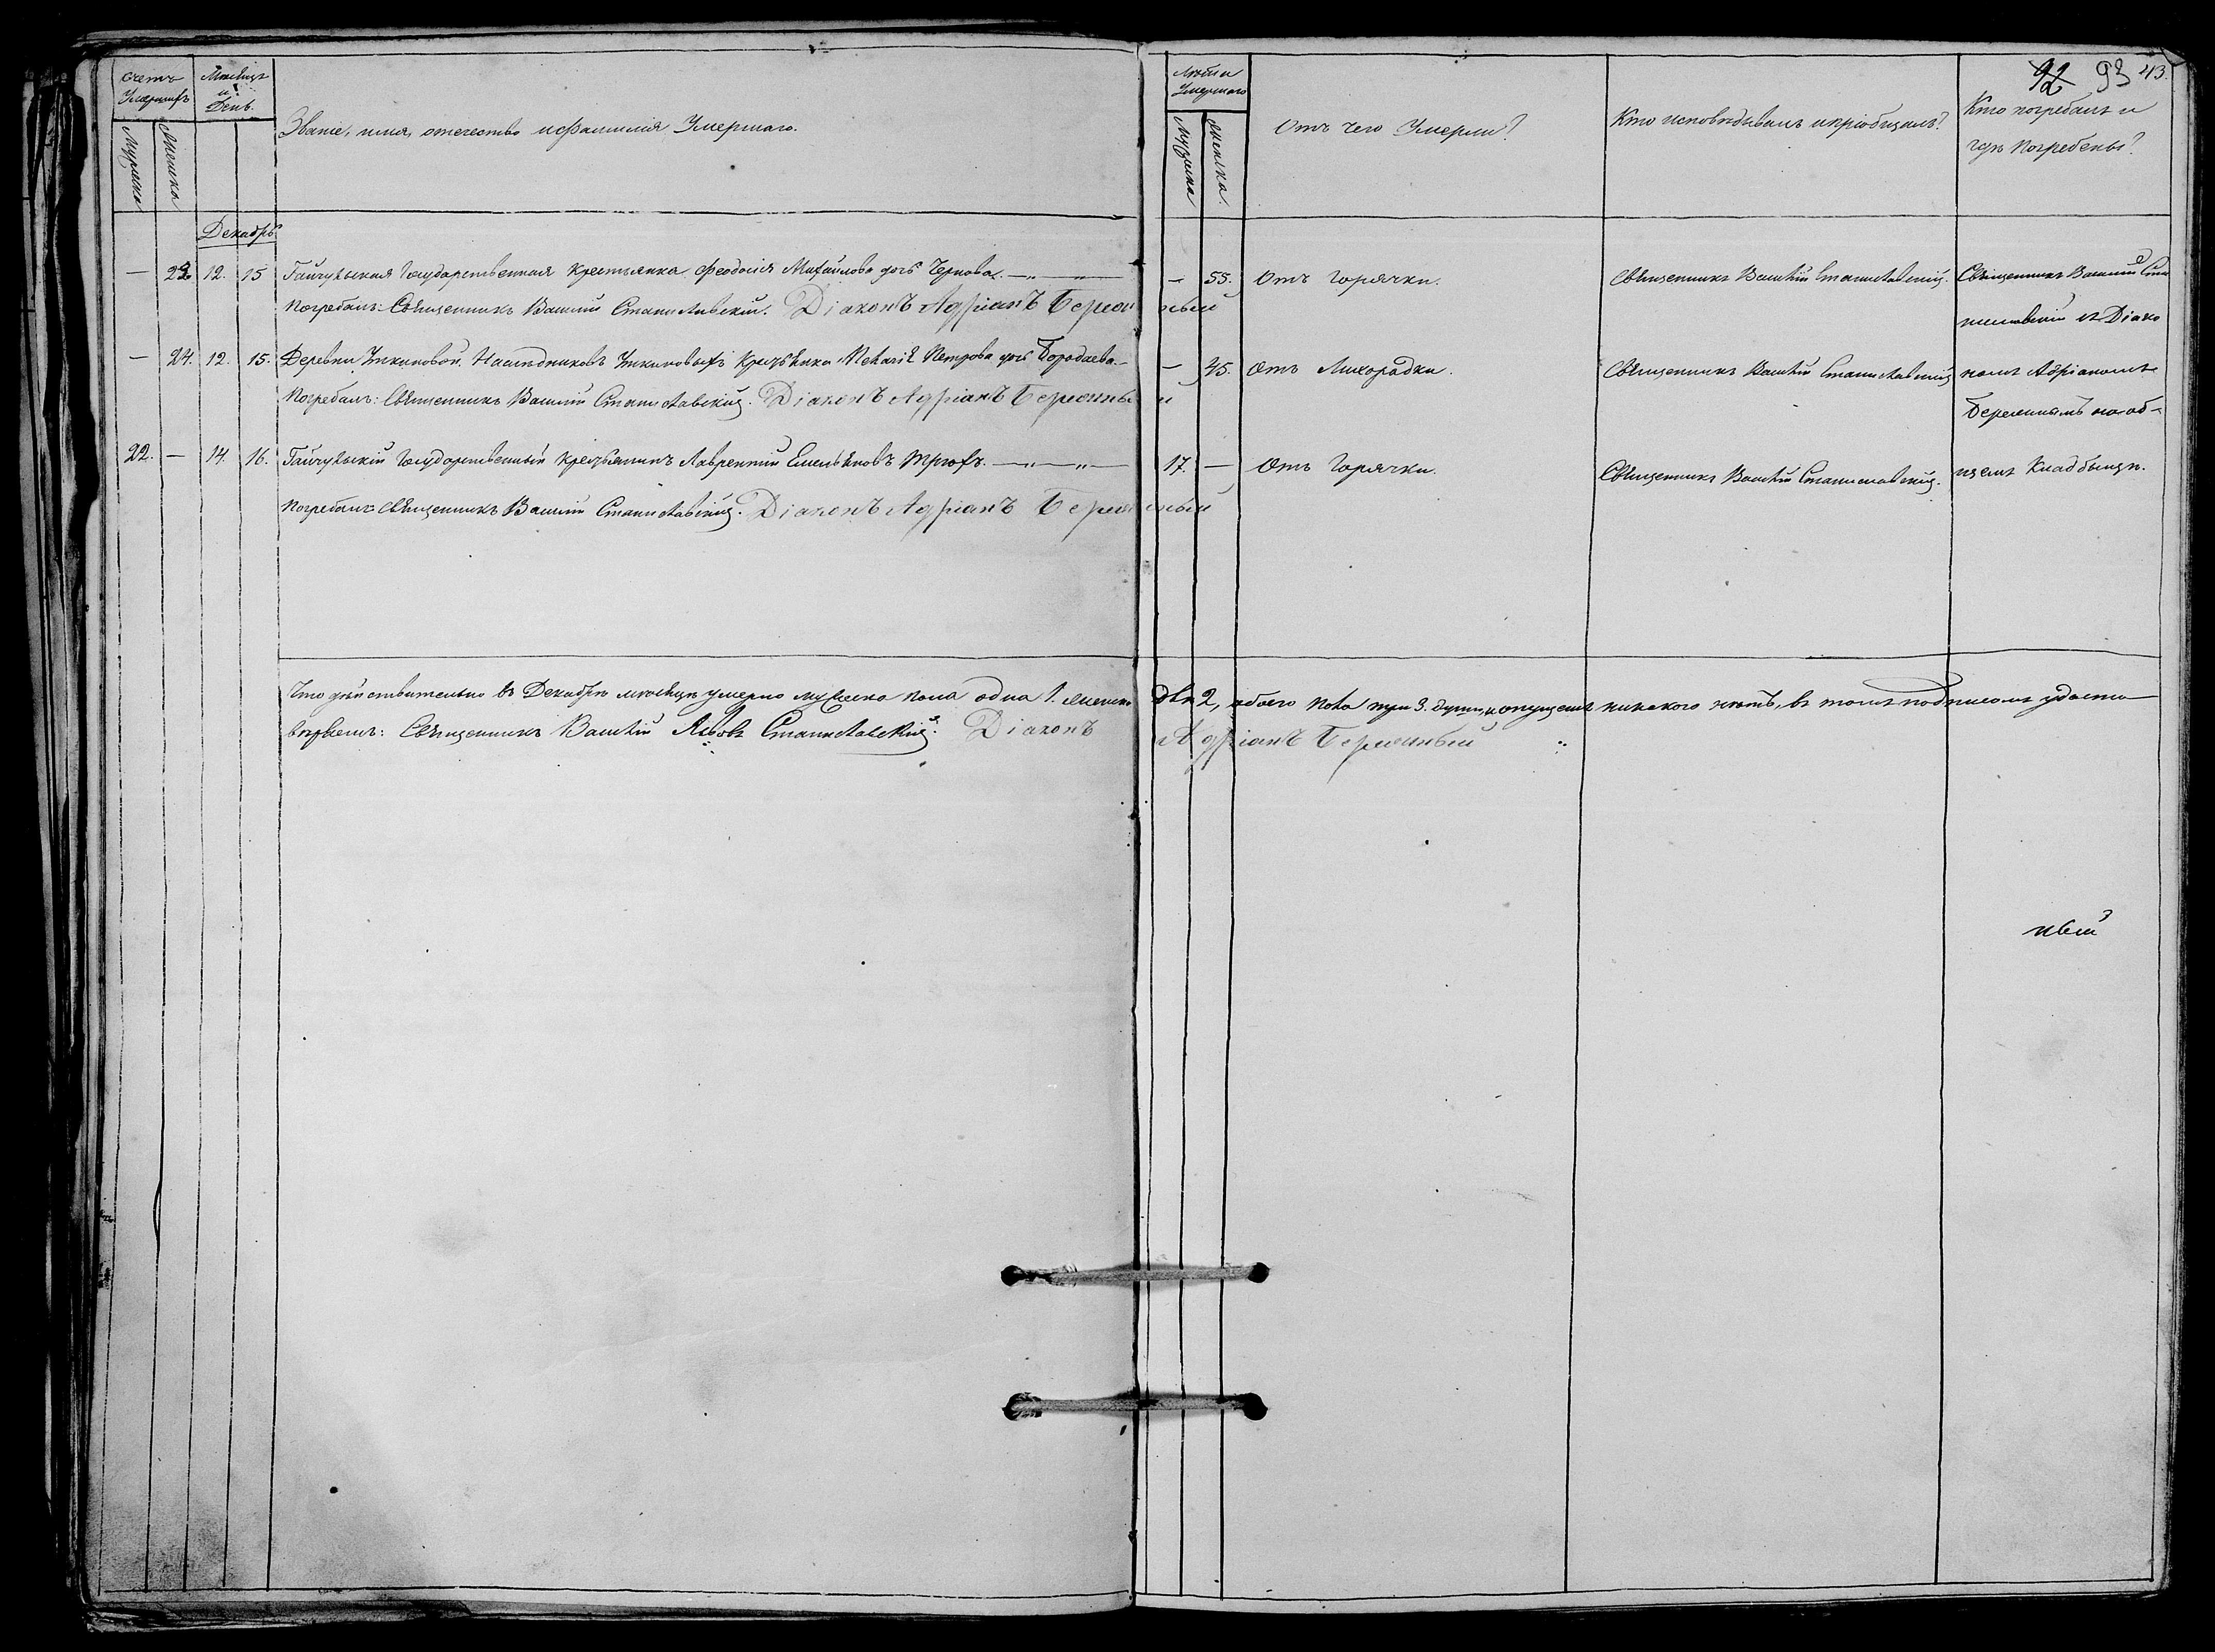 92 93 43.
Счетъ Умершихъ
Мѣсяцъ и День.
Званіе, имя, отечество и фамилія Умершаго.
Лѣта Умершаго
Отъ чего Умерли?
Кто исповѣдывалъ и пріобщалъ?
Кто погребалъ и гдѣ погребены?
Мужеска Женска
Мужеска Женска
Декабрь
— 23. 12. 15 Гайчульская Государственная крестьянка Феодосія Михайлова дочь Чернова. — 55. Отъ горячки. Священникъ Василій Станиславскій. Священникъ Василій Стани
Погребалъ: Священникъ Василій Станиславскій. Діаконъ Адріанъ Бережный
славскій съ Діако
— 24. 12. 15. Деревни Наслѣдниковъ крестьянка Меланія Петрова дочь Бородаева — 45. Отъ Лихорадки. Священникъ Василій Станиславскій номъ Адріаномъ
Погребалъ: Священникъ Василій Станиславскій. Діаконъ Адріанъ Бережный
Бережнымъ на об-
22. — 14. 16. Гайчульскій Государственный крестьянинъ Лаврентій Емельяновъ 17. — Отъ Горячки. Священникъ Василій Станиславскій. щемъ Кладбищѣ.
Погребалъ: Священникъ Василій Станиславскій. Діаконъ Адріанъ Бережный
Что дѣйствительно въ Декабрѣ мѣсяцѣ умерло мужеска пола одна 1. женска двѣ 2, обоего пола три 3. души, и опущенія никакого нѣтъ, въ томъ подписомъ удосто
вѣряемъ: Священникъ Василій Львовъ Станиславскій. Діаконъ Адріанъ Бережный
ный